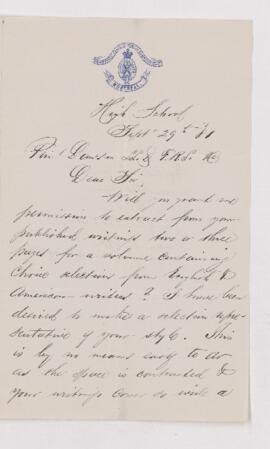 MONTREAL
High School
Sept 29th /81
Prin. Dawson LL.D F.R.S. &c
Dear Sir,
Will you grant me
permission to extract from your
published writings two or three
pages for a volume containing
choice selections from English &
American writers? I have been
desired to make a selection repre-
sentative of your style. This
is by no means easy to do
as the space is contracted &
your writings cover so wide a